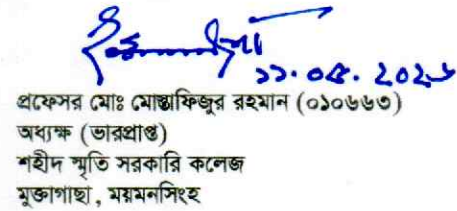 ১১.০৫.২০২৬
প্রফেসর মোঃ মোস্তাফিজুর রহমান (০১০৬৬৩)
অধ্যক্ষ (ভারপ্রাপ্ত)
শহীদ স্মৃতি সরকারি কলেজ
মুক্তাগাছা, ময়মনসিংহ